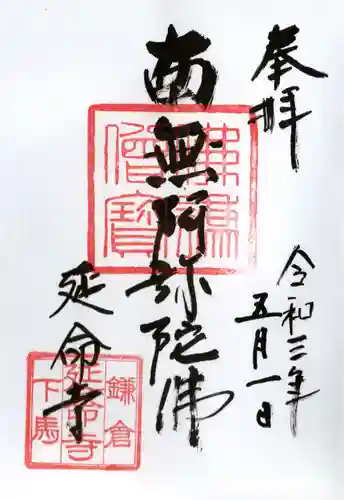 奉拝
令和三年
五月一日
南無阿弥陀佛
佛法僧寶
延命寺
鎌倉
延命寺
下馬